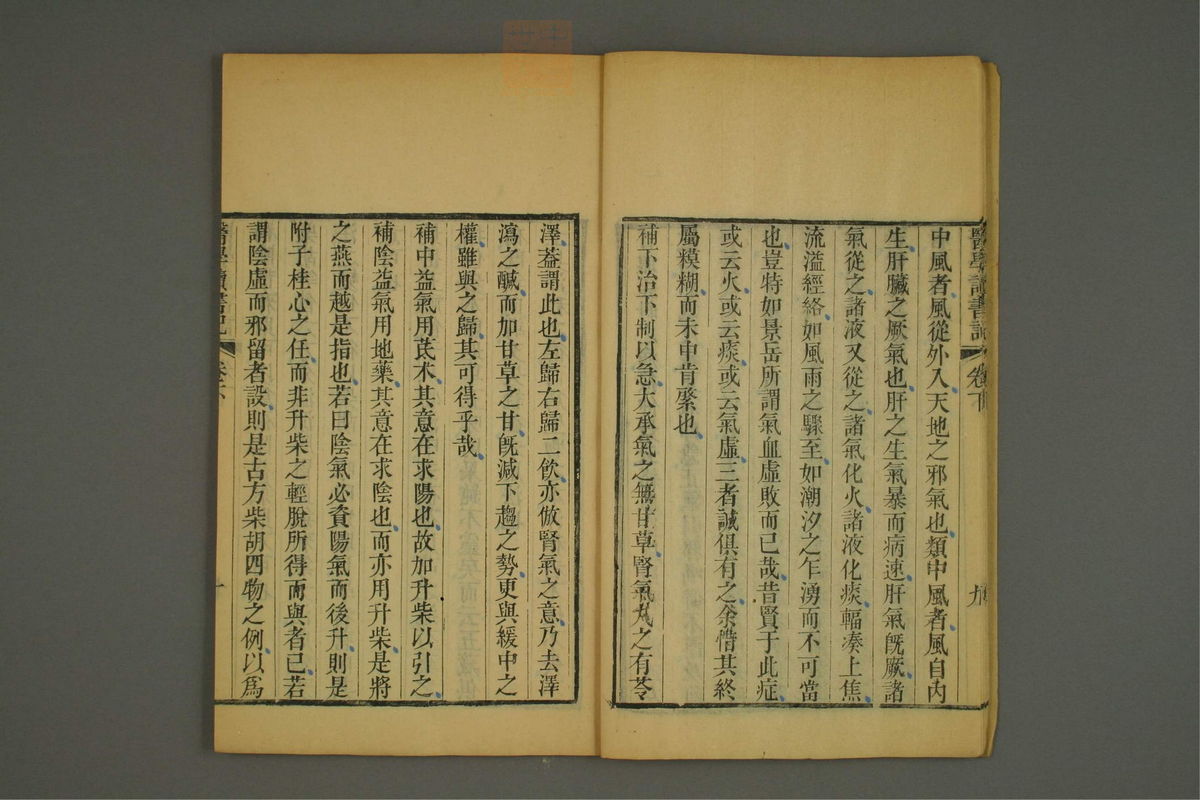 醫學讀書記
卷下
九
中風者風從外入天地之邪氣也類中風者風自內
生肝臟之厥氣也肝之生氣暴而病速肝氣旣厥諸
氣從之諸液又從之諸氣化火諸液化痰輻凑上焦
流溢經絡如風雨之驟至如潮汐之乍湧而不可當
也豈特如景岳所謂氣血虛敗而已哉昔賢于此症
或云火或云痰或云氣虛三者誠俱有之余惜其終
屬糢糊而未中肯綮也
補下治下制以急大承氣之無甘草腎氣丸之有苓
澤葢謂此也左歸右歸二飲亦倣腎氣之意乃去澤
瀉之鹹而加甘草之甘旣減下趨之勢更與緩中之
權雖與之歸其可得乎哉
補中益氣用芪朮其意在求陽也故加升柴以引之
補陰益氣用地藥其意在求陰也而亦用升柴是將
之燕而越是指也若曰陰氣必資陽氣而後升則是
附子桂心之任而非升柴之輕脫所得而與者已若
謂陰虛而邪留者設則是古方柴胡四物之例以爲
醫學讀書記
卷下
十